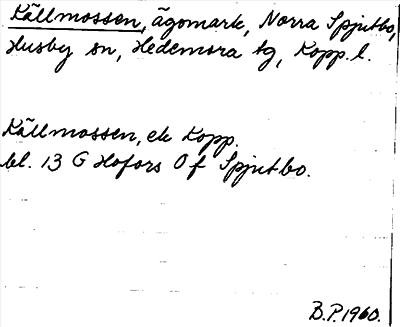 Källmossen, ägomark, Norra Spjutbo,
Husby sn, Hedemora tg, Kopp. l.
Källmossen, ek Kopp.
bl. 13 G Hofors O f Spjutbo.
B.P. 1960.